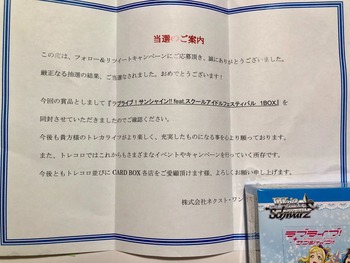 当選のご案内
この度は、フォロー＆リツイートキャンペーンにご応募頂き、誠にありがとうございました。
厳正なる抽選の結果、ご当選なされました。おめでとうございます！
今回の賞品としまして『ラブライブ！サンシャイン!! feat.スクールアイドルフェスティバル 1BOX』を
同封させていただきましたのでご確認ください。
今後も貴方様のトレカライフがより楽しく、充実したものになる事を心より願っております。
また、トレコロではこれからもさまざまなイベントやキャンペーンを行っていく所存です。
今後ともトレコロ並びに CARD BOX 各店をご愛顧頂けます様、よろしくお願い申し上げます。
株式会社ネクスト・ワン
Schwarz
ラブライブ！
サンシャイン!!